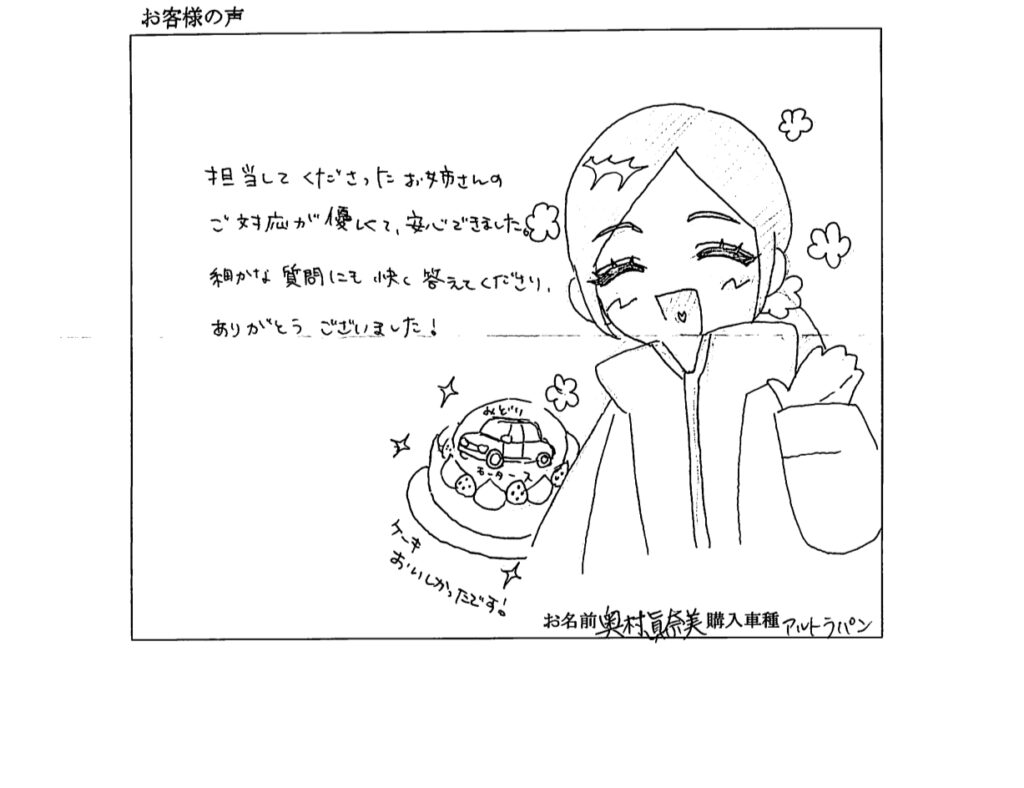 お客様の声
担当して くださった お姉さんの
ご対応が優しくて、安心できました。
細かな 質問にも 快く 答えてくださり、
ありがとう ございました!
みどり
モータース
ケーキ
おいしかったです!
お名前 奥村眞奈美 購入車種 アルトラパン